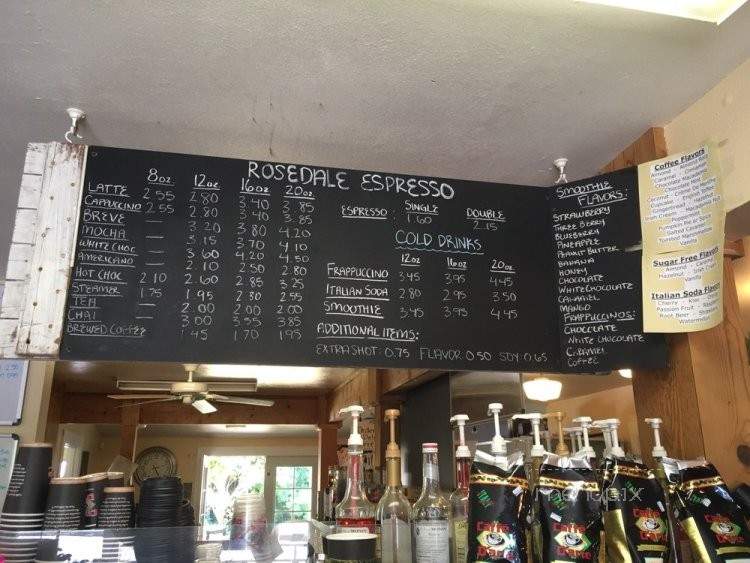 ROSEDALE ESPRESSO
8oz 12oz 16oz 20oz
LATTE 2.55 2.80 3.40 3.85
CAPPUCCINO 2.55 2.80 3.40 3.85
BREVE — 3.20 3.80 4.20
MOCHA — 3.15 3.70 4.10
WHITE CHOC — 3.60 4.20 4.50
AMERICANO — 2.10 2.50 2.80
HOT CHOC 2.10 2.60 2.85 3.25
STEAMER 1.75 1.95 2.30 2.55
TEA — 2.00 2.00 2.00
CHAI — 3.00 3.55 3.85
BREWED COFFEE — 1.45 1.70 1.95
SINGLE DOUBLE
ESPRESSO 1.60 2.15
COLD DRINKS
12oz 16oz 20oz
FRAPPUCCINO 3.45 3.95 4.45
ITALIAN SODA 2.80 2.95 3.50
SMOOTHIE 3.45 3.95 4.45
ADDITIONAL ITEMS:
EXTRA SHOT: 0.75 FLAVOR 0.50 SOY: 0.65
SMOOTHIE
FLAVORS:
STRAWBERRY
THREE BERRY
BLUEBERRY
PINEAPPLE
PEANUT BUTTER
BANANA
HONEY
CHOCOLATE
WHITE CHOCOLATE
CARAMEL
MANGO
FRAPPUCCINOS:
CHOCOLATE
WHITE CHOCOLATE
CARAMEL
COFFEE
Coffee Flavors
Almond
Caramel
Irish Cream
Pumpkin Pie
Salted Caramel
Toasted Marshmallow
Vanilla
Sugar Free Flavors
Almond - Caramel
Hazelnut - Irish Cream
Vanilla
Italian Soda Flavors
Cherry - Kiwi
Passion Fruit
Root Beer
Watermelon
Caffe
D'arte
Caffe
D'arte
Caffe
D'arte
Caffe
D'arte